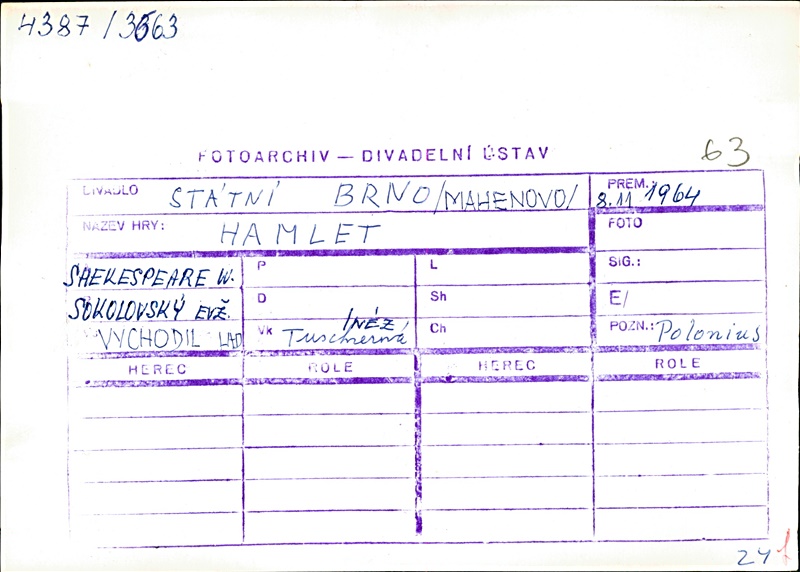 4387/3563
FOTOARCHIV — DIVADELNÍ ÚSTAV
63
DIVADLO STÁTNÍ BRNO/MAHENOVO/
PREM.: 8.11 1964
NÁZEV HRY: HAMLET
FOTO
SHEKESPEARE W.
P
L
SIG.:
SOKOLOVSKÝ EVŽ.
D
Sh
E/
VYCHODIL LAD
Vk Tuschnerová INÉZ
Ch
POZN.: Polonius
HEREC ROLE HEREC ROLE
24 f